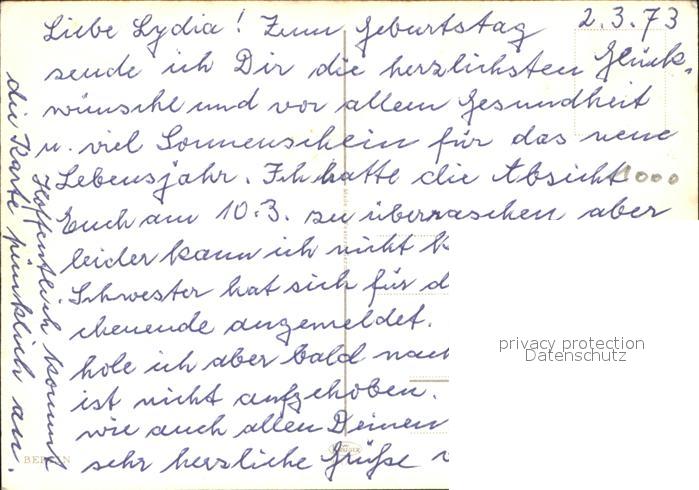 2.3.73
Liebe Lydia! Zum Geburtstag
sende ich Dir die herzlichsten Glück-
wünsche und vor allem Gesundheit
u. viel Sonnenschein für das neue
Lebensjahr. Ich hatte die Absicht
Euch am 10.3. zu überraschen aber
leider kann ich nicht k
Schwester hat sich für d
chenende angemeldet.
hole ich aber bald nach
ist nicht aufgehoben.
wie auch allen Deinen
sehr herzliche Grüße
Hoffentlich kommt
die Karte pünklich an.
1000
privacy protection
Datenschutz
BERLIN
KRÜGER